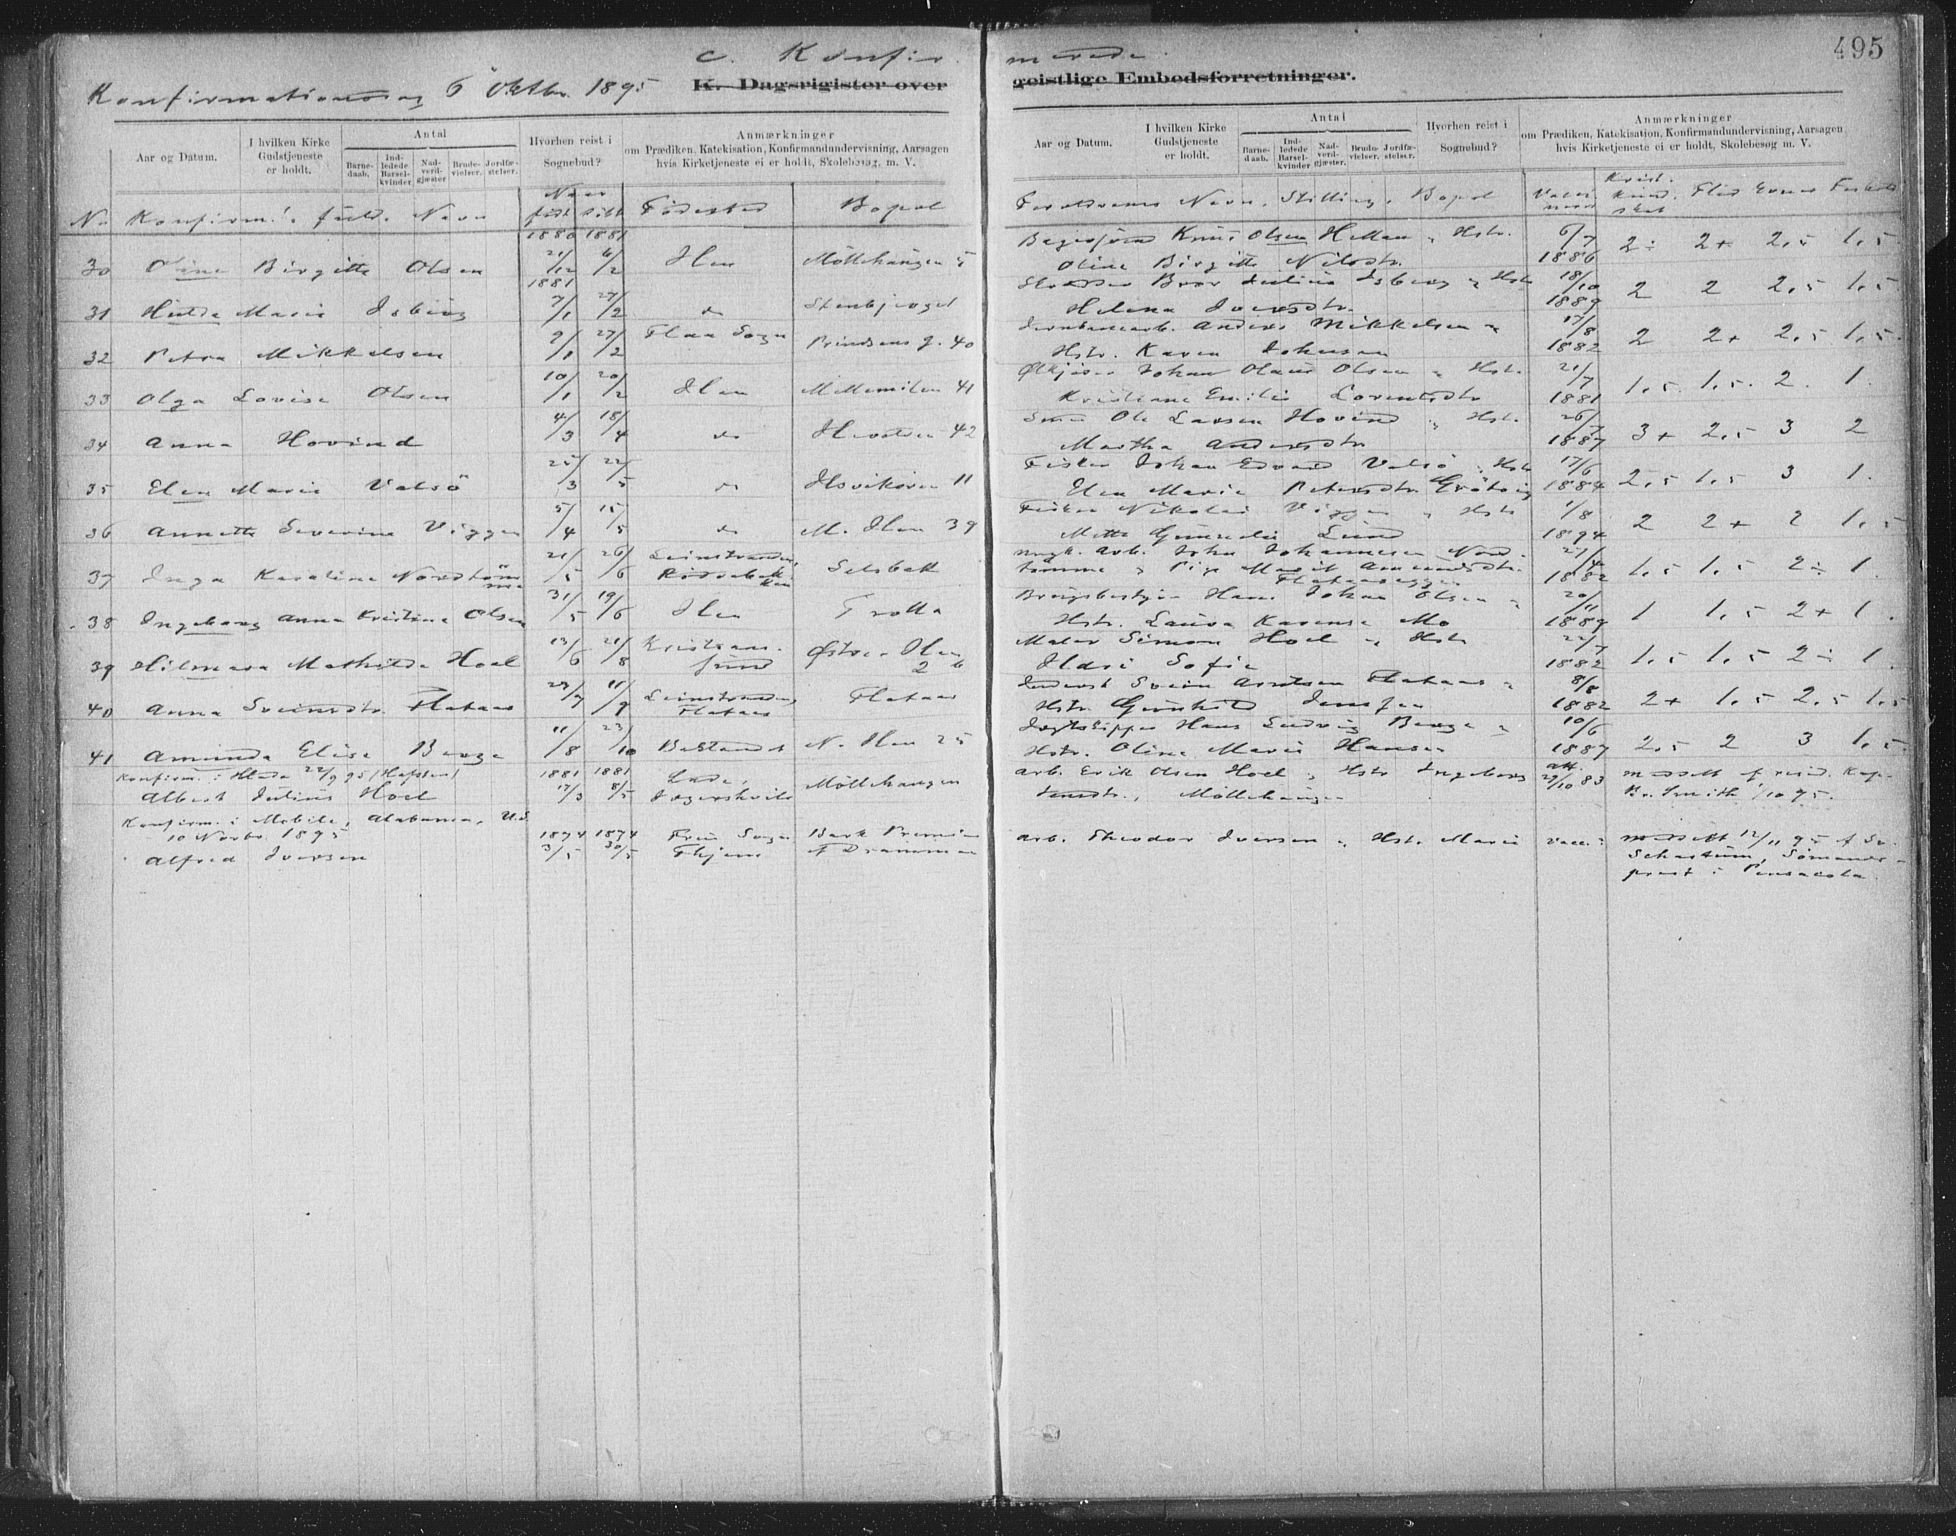 495
c. Konfirmerede
Konfirmationsdag 6 Oktbr. 1895
K. Dagsrigister over geistlige Embedsforretninger.
Aar og Datum.
I hvilken Kirke Gudstjeneste er holdt.
Antal
Barne-daab.
Ind-ledede Barsel-kvinder
Nad-verd-gjæster
Brude-vielser.
Jordfæ-stelser.
Hvorhen reist i Sognebud?
Anmærkninger
om Prædiken, Katekisation, Konfirmandundervisning, Aarsagen
hvis Kirketjeneste ei er holdt, Skolebesøg, m. V.
Aar og Datum.
I hvilken Kirke Gudstjeneste er holdt.
Antal
Barne-daab.
Ind-ledede Barsel-kvinder
Nad-verd-gjester.
Brude-vielser.
Jordfæ-stelser.
Hvorhen reist i Sognebud?
Anmærkninger
om Prædiken, Katekisation, Konfirmandundervisning, Aarsagen
hvis Kirketjeneste ei er holdt, Skolebesøg m. V.
No Konfirm.'s fuld. Navn Naar født døbt Fødested Bopæl Forældrenes Navn, Stilling, Bopæl Flid Evner Forhold
1880 1881
30 Oline Birgitte Olsen 21/12 6/2 Ilen Møllehaugen 5 Knut Olsen Hellan, Hstr. Oline Birgitte Nilsdtr. 6/7 1886 2÷ 2+ 2,5 1,5
1881
31 Hulda Marie Isberg 7/1 27/2 do Stenbjerget Bror Julius Isberg, Hstr. Helena Iversdtr. 18/10 1889 2 2 2,5 1,5
32 Petra Mikkelsen 9/1 27/2 Flaa Sogn Prindsens g. 40 Jernbanearb. Anders Mikkelsen, Hstr. Karen Johnsen 17/8 1882 2 2+ 2,5 1,5
33 Olga Lovise Olsen 10/1 20/2 Ilen Mellemilen 41 Johan Olaus Olsen, Hstr. Kristiane Emilie Lorentsdtr 21/7 1881 1,5 1,5 2 1
34 Anna Hovind 4/3 18/4 do 42 Ole Larsen Hovind, Hstr. Martha Andersdtr 26/7 1887 3+ 2,5 3 2
35 Elen Marie Valsö 25/3 22/5 do Ilsvikøren 11 Fisker Johan Edvard Valsö, Hstr. Marie Petersdtr 17/6 1884 2,5 1,5 3 1
36 Annette Severine Viggen 5/4 15/5 do M. Ilen 39 Fisker Nikolai Viggen, Hstr Mette Gunnelie Lund 1/8 1894 2 2+ 2 1,5
37 Inga Karoline Nordtömme 21/5 26/6 Leinstranden, Selsbak arb. John Johannesen Nordtömme, Pige Marit Amundsdtr. 27/4 1882 1,5 1,5 2÷ 1
38 Ingeborg Anna Kristine Olsen 31/5 19/6 Ilen Trolla Brugsbestyrer Hans Johan Olsen, Hstr. Laura Karense Mo 20/11 1889 1 1,5 2+ 1
39 Hilmara Mathilde Hoel 13/6 21/8 Kristiansund Østre Ilen 2 b Maler Simon Hoel, Hstr Ildri Sofie 22/7 1882 1,5 1,5 2÷ 1
40 Anna Sveinsdtr. Flataas 29/7 11/9 Leinstranden, Flataas Flataas Svein Arntsen Flataas, Hstr. Gunhild Jensen 8/8 1882 2+ 1,5 2,5 1,5
41 Amunda Elise Berge 11/8 23/10 Bakland N. Ilen 25 Jagtskipper Hans Ludvig Berge, Hstr. Oline Marie Hansen 10/6 1887 2,5 2 3 1,5
Konfirm. i Hlade 22/9 95 (Hafsten)
Albert Julius Hoel 1881 17/3 1881 8/5 Lade, Møllehaugen arb. Erik Olsen Hoel, Hstr Ingeborg Jensdtr., Møllehaugen att. 29/10 83 meddelt af resid. Kap. Br. Smith 1/10 95.
Konfirm. i Mobile, Alabama, U.S.
10 Novbr. 1895
Alfred Iversen 1874 3/5 1874 30/5 Sogn Bark af Drammen arb. Theodor Iversen, Hstr. Marie vacc. meddelt 12/11 95 af Sømandsprest i Pensacola.